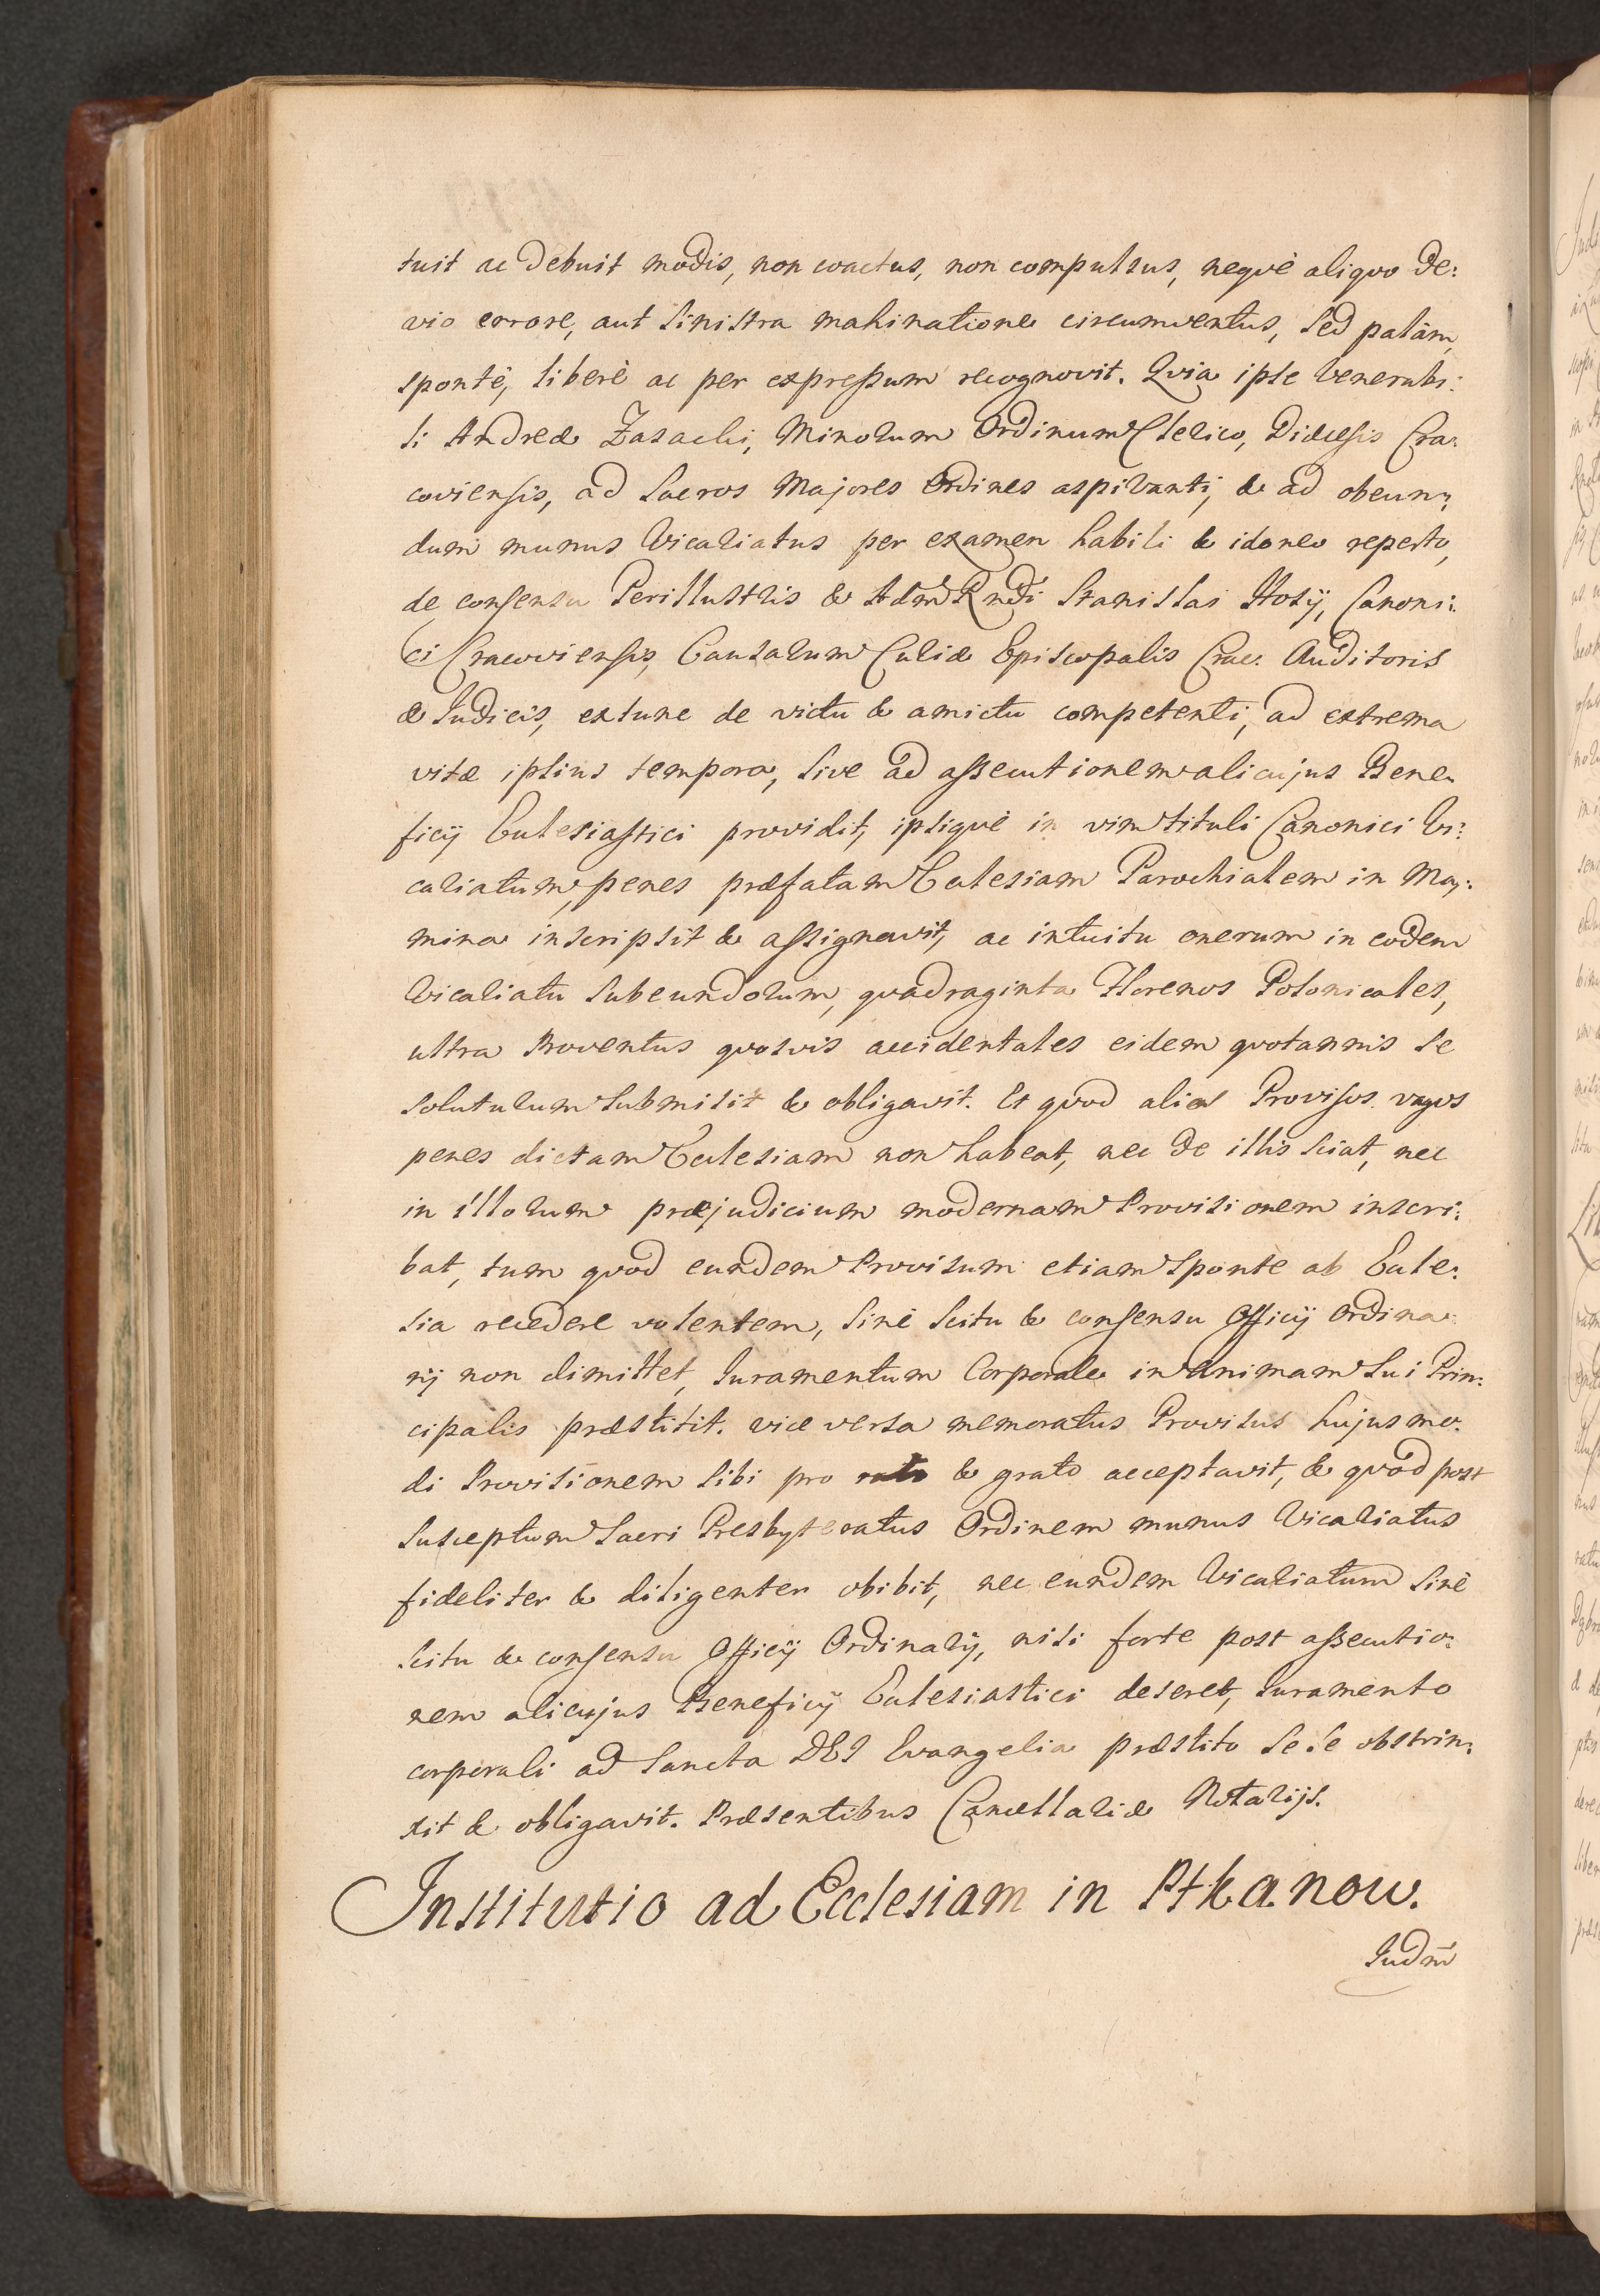 tuit ac debuit modis, non coactus, non compulsus, neque aliquo de:
vio errore, aut sinistra mahinatione circumventus, sed palàm,
spontè, liberè ac per expressum recognovit. Quia ipse Venerabi:
li Andreæ Zasacki, Minorum Ordinum Clerico, Diæcesis Cra:
coviensis, ad Sacros Majores Ordines aspiranti, & ad obeun:
dum munus Vicariatus per examen habili & idoneo reperto,
de consensu Perillustris & Adm Rndi Stanislai Hosij, Canoni:
ci Cracoviensis, Causarum Curiæ Episcopalis Crac. Auditoris
& Iudicis, extunc de victu & amictu competenti, ad extrema
vitæ ipsius tempora, sive ad assecutionem alicujus Bene:
ficij Ecclesiastici providit, ipsiquè in vim tituli Canonici Vi:
cariatum, penes præfatam Ecclesiam Parochialem in
inscripsit & assignavit, ac intuitu onerum in eodem
Vicariatu subeundorum, quadraginta Florenos Polonicales,
ultra Proventus quosvis accidentales eidem quotannis se
soluturum submisit & obligavit. Et quod alios Provisos vagos
penes dictam Ecclesiam non habeat, nec de illis sciat, nec
in illorum præjudicium modernam Provisionem inscri:
bat, tum quod eundem Provisum etiam sponte ab Eccle:
sia recedere volentem, sinè scitu & consensu Officij Ordina:
rij non dimittet, Iuramentum Corporale in animam sui Prin:
cipalis præstitit. vice versa memoratus Provisus hujusmo:
di Provisionem sibi pro rato & grato acceptavit, & quod post
susceptum Sacri Presbyteratus Ordinem munus Vicariatus
fideliter & diligenter obibit, nec eundem Vicariatum sinè
scitu & consensu Officij Ordinarij, nisi forte post assecutio:
nem alicujus Beneficij Ecclesiastici deseret, Iuramento
corporali ad Sancta DEI Evangelia præstito sese obstrin:
xit & obligavit. Præsentibus Cancellariæ Notarijs.
Institutio ad Ecclesiam in Ptkanow.
Iudm̄